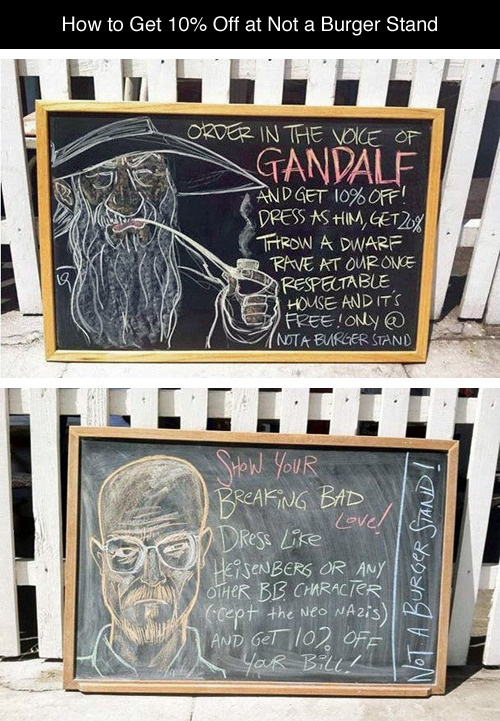 How to Get 10% Off at Not a Burger Stand
ORDER IN THE VOICE OF
GANDALF
AND GET 10% OFF!
DRESS AS HIM, GET 20%
THROW A DWARF
RAVE AT OUR ONCE
RESPECTABLE
HOUSE AND IT'S
FREE! ONLY @
NOT A BURGER STAND
SHOW YOUR
BREAKING BAD
Love!
DRESS LIKE
HEISENBERG OR ANY
OTHER BB CHARACTER
('cept the Neo NAZis)
AND GET 10% OFF
YOUR BILL!
NOT A BURGER STAND!